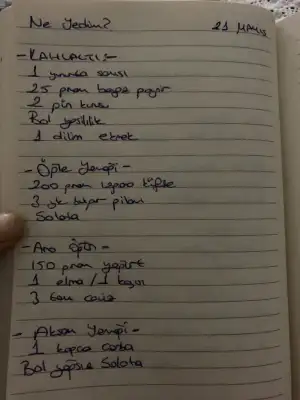 Ne Yedim? 21 MAYIS
- KAHVALTI -
1 yumurta sarısı
25 gram beyaz peynir
2 gün kurusu
Bol yeşillik
1 dilim ekmek
- Öğle Yemeği -
200 gram ızgara köfte
3 yk bulgur pilavı
Salata
- Ara Öğün -
150 gram yoğurt
1 elma / 1 kayısı
3 tam ceviz
- Akşam Yemeği -
1 kepçe çorba
Bol yağsız Salata